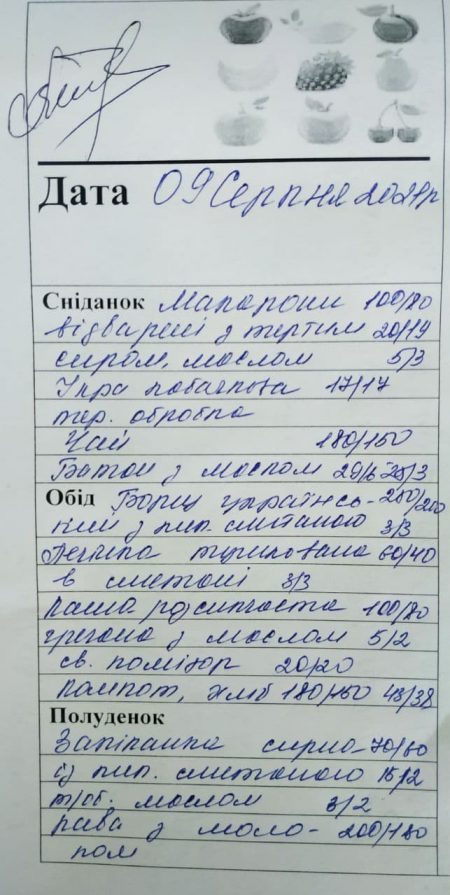 Дата 09 Серпня 2024р
Сніданок Макарони 100/80
відварені з тертим 20/19
сиром, маслом 5/3
Ікра кабачкова 17/17
тер. обробка
Чай 180/150
Батон з маслом 29/6 25/3
Обід Борщ українсь- 250/200
кий з кип. сметаною 3/3
Печінка тушкована 60/40
в сметані 3/3
каша розсипчаста 100/80
гречана з маслом 5/2
св. помідор 20/20
компот, хліб 180/150 48/38
Полуденок
Запіканка сирна 70/60
із кип. сметаною 15/12
т/об. маслом 3/2
кава з моло- 200/180
ком